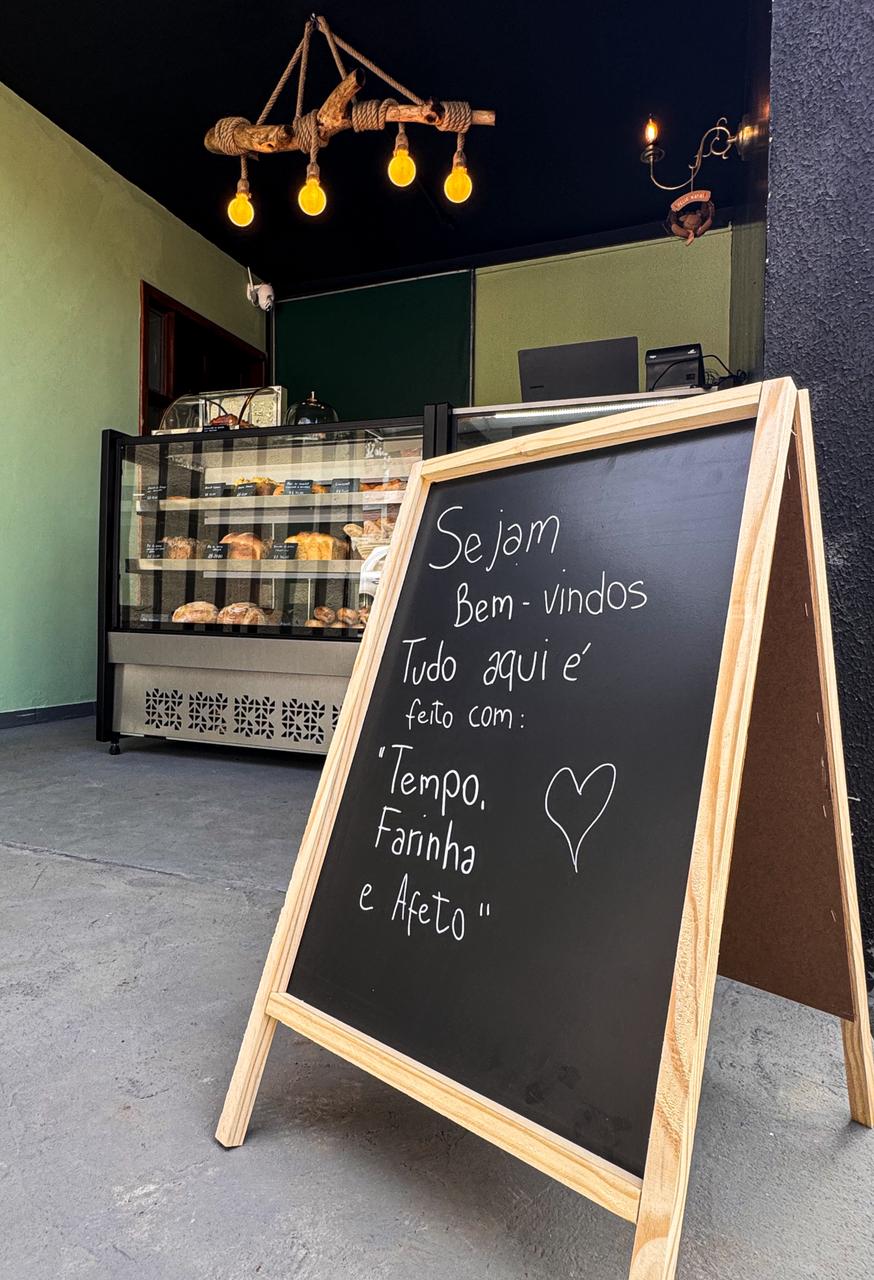 Sejam
Bem-vindos
Tudo aqui é
feito com:
"Tempo,
Farinha
e Afeto"